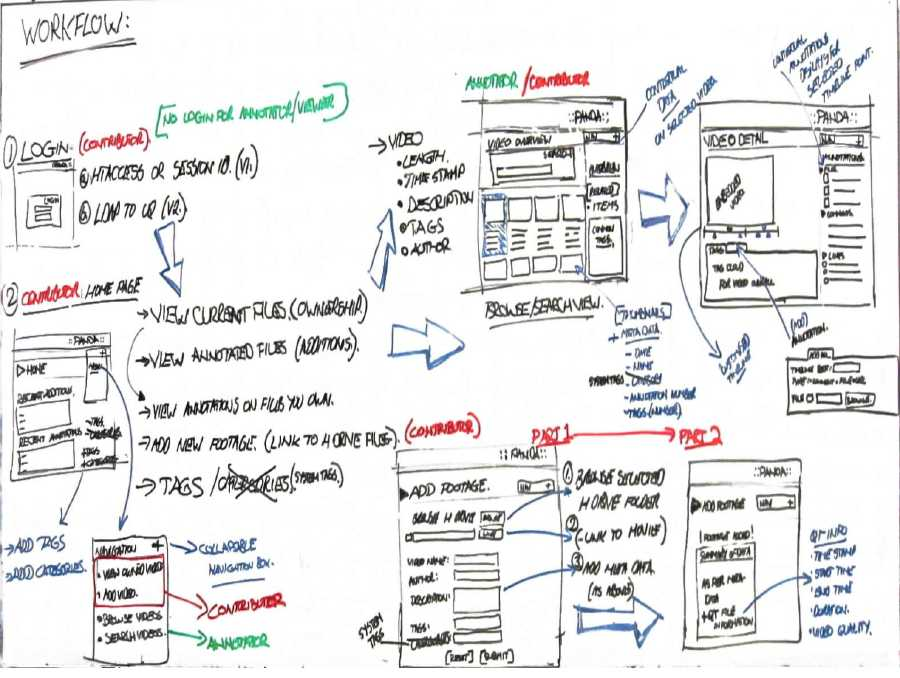 WORKFLOW:
[NO LOGIN FOR ANNOTATOR/VIEWER]
① LOGIN. (CONTRIBUTOR).
LOGIN
ⓐ HTACCESS OR SESSION ID. (V1.)
ⓑ LDAP TO UQ (V2.)
② CONTRIBUTOR: HOME PAGE
::PANDA::
▷HOME
RECENT ADDITIONS.
RECENT ANNOTATIONS
TAGS
+CATEGORIES
→ADD TAGS
→ADD CATEGORIES.
→VIEW CURRENT FILES. (OWNERSHIP.)
→VIEW ANNOTATED FILES (ADDITIONS).
→VIEW ANNOTATIONS ON FILES YOU OWN.
→ADD NEW FOOTAGE. (LINK TO H DRIVE FILES).
→TAGS /CATEGORIES). (SYSTEM TAGS)
NAVIGATION +
• VIEW OWNED VIDEO
• ADD VIDEO.
• BROWSE VIDEOS
• SEARCH VIDEOS.
→COLLAPABLE
NAVIGATION BOX.
→CONTRIBUTOR
→ANNOTATOR
→VIDEO
• LENGTH.
• TIME STAMP
• DESCRIPTION
• TAGS
• AUTHOR
ANNOTATOR /CONTRIBUTOR
::PANDA::
VIDEO OVERVIEW
NAV +
SEARCH
[RELATED]
• ITEMS
COMMON
TAGS.
BROWSE/SEARCH VIEW.
CONTEXTUAL
DATA
ON SELECTED VIDEO
[THUMBNAILS]
+ META DATA.
- DATE
- NAME
SYSTEM TAGS -CATEGORY
- ANNOTATION NUMBER
- TAGS (NUMBER).
CONTEXTUAL
ANNOTATIONS
DISPLAY FOR
SELECTED
TIMELINE POINT.
::PANDA::
VIDEO DETAIL
NAV +
ANNOTATIONS
EMBEDDED
VIDEO
COMMENTS
LINKS
TAGS
TAG CLOUD
TIMELINE
(ADD)
ANNOTATION.
FILE
BROWSE
(CONTRIBUTOR)
PART 1 → PART 2
::PANDA::
▶ADD FOOTAGE.
NAV +
BROWSE H DRIVE
LINK
VIDEO NAME:
AUTHOR:
DESCRIPTION:
TAGS:
CATEGORIES
SYSTEM
TAGS
[RESET] [SUBMIT]
① BROWSE SELECTED
H DRIVE FOLDER
②
(-LINK TO MOVIE)
③
ADD META DATA
(AS ABOVE)
::PANDA::
▶ADD FOOTAGE
NAV +
! FOOTAGE ADDED!
SUMMARY OF DATA
AS PER META-
DATA
+QT FILE
INFORMATION
QT INFO
• TIME STAMP
• START TIME
• END TIME
• DURATION.
• VIDEO QUALITY.